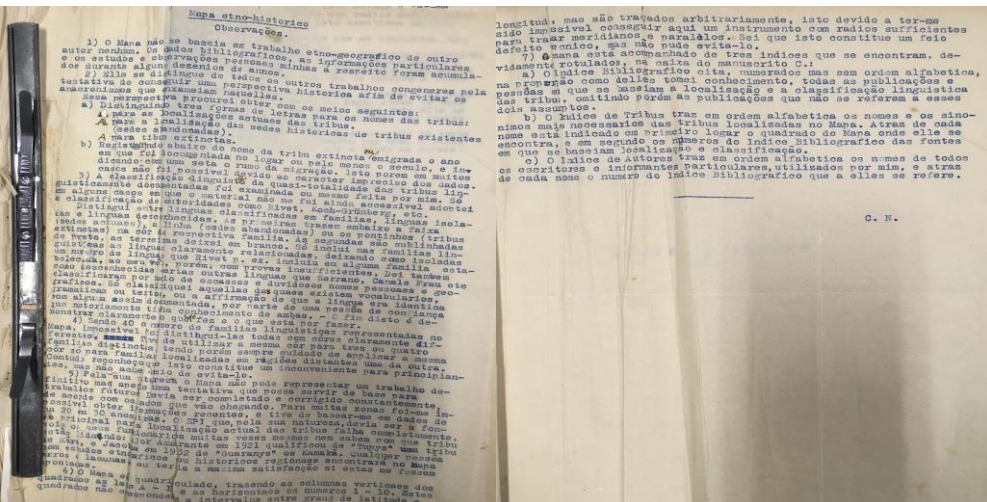 Mapa etno-historico
Observações.
1) O Mapa não se baseia em trabalho etno-geografico de outro
autor nenhum. Os dados bibliograficos, as informações particulares
e os estudos e observações pessoaes minhas a respeito foram acumula-
dos durante alguns decenios de annos.
2) Elle se distingue de todos os outros trabalhos congeneres pela
tentativa de conseguir uma perspectiva historica afim de evitar os
anacronismos que enxameiam naquelles.
Essa perspectiva procurei obter com os meios seguintes:
a) Distinguindo tres formas de letras para os nomes das tribus:
A para as localisações actuaes das tribus.
A para a localisação das sedes historicas de tribus existentes
(sedes abandonadas).
A para tibus extinctas.
b) Registando abaixo do nome da tribu extincta ou emigrada o ano
em que foi documentada no logar ou pelo menos o seculo, e in-
dicando com uma seta o rumo da migração. Isto porem em muitos
casos não foi possivel devido ao carater impreciso dos dados.
3) A classificação linguistica da quasi-totalidade das tribus lin-
guisticamente documentadas foi examinada ou mesmo feita por mim. Só
em alguns casos em que o material não me foi ainda accessivel adoptei
a classificação de autoridades como Rivet, Koch-Grünberg, etc.
Distingui entre linguas classificadas em familias, linguas isola-
das e linguas desconhecidas. As primeiras trazem embaixo a faixa
(sedes actuaes), a linha (sedes abandonadas) ou os pontinhos (tribus
extinctas) na côr da respectiva familia. As segundas são sublinhadas
de preto, as terceiras deixei em branco. Só inclui nas familias lin-
guisticas as linguas claramente relacionadas, deixando como isoladas
um numero de linguas que Rivet p. ex. incluiu em alguma familia esta-
belecida, ao meu ver, porém, com provas insufficientes. Dei tambem
como desconhecidas certas outras linguas que Serrano, Canals Frau etc
classificaram por meio de escassos e duvidosos nomes pessoaes e geo-
graficos. Só classifiquei aquellas das quaes existem vocabularios,
gramaticas ou textos, ou a affirmação de que a lingua era identica
com alguma assim documentada, por parte de uma pessôa de confiança
que notoriamente tinha conhecimento de ambas. - O fim disto é de-
monstrar claramente o que fez e o que esta por fazer.
4) Sendo 40 o numero de familias linguisticas representadas no
Mapa, impossivel foi distingui-las todas com côres claramente dif-
ferentes. Tive de utilizar a mesma cor para tres ou quatro
familias distinctas, tendo porém sempre cuidado de applicar a mesma
côr só para familas localizadas em regiões distantes uma da outra.
Comtudo reconheço que isto constitue um inconveniente para principian-
tes, mas não achei meio de evita-lo.
5) Pela sua natureza o Mapa não pode representar um trabalho de-
finitivo mas apenas uma tentativa que possa servir de base para
trabalhos futuros. Devia ser completado e corrigido constantemente,
de acordo com os dados que vão chegando. Para muitas zonas foi-me im-
possivel obter informações recentes, e tive de basear-me em dados de
ha 20 ou 30 anos atras. O SPI que, pela sua natureza, devia ser a fon-
te principal para localisação actual das tribus falha completamente,
pois os seus funcionarios muitas vezes mesmos nem sabem com que tribu
estão lidando: Amarante em 1921 qualificou de "Tupys" uma tribu
e Jacobá em 1932 de "Guaranys" os Kamakã. Qualquer pessoa
estudos etnograficos ou historicos regionaes encontrará no Mapa
erros e lacunas, eu teria a maxima satisfacção si estas me fossem
apontadas.
6) O Mapa é quadriculado, trazendo as columnas verticaes dos
quadrados as letras A - e as horizontaes os numeros 1 - 10. Estes
quadrados não correspondem a intervalos entre graus de latitude e
longitude, mas são traçados arbitrariamente, isto devido a ter-me
sido impossivel conseguir aqui um instrumento com radios sufficientes
para traçar meridianos e paralélos. Sei que isto constitue um feio
defeito tecnico, mas não pude evita-lo.
7) O mapa está acompanhado de tres indices que se encontram, de-
vidamente rotulados, na caixa do manuscrito C.:
a) O Indice Bibliografico cita, numerados mas sem ordem alfabetica,
na proporção como delles tomei conhecimento, todas as publicações e
pessôas em que se baseiam a localisação e a classificação linguistica
das tribus, omitindo porém as publicações que não se referem a esses
dois assumptos.
b) O Indice de Tribus traz em ordem alfabetica os nomes e os sino-
nimos mais necessarios das tribus localizadas no Mapa. Atras de cada
nome está indicado em primeiro logar o quadrado do Mapa onde elle se
encontra, e em segundo os numeros do Indice Bibliografico das fontes
em que se baseiam localisação e classificação.
c) O Indice de Autores traz em ordem alfabetica os nomes de todos
os escritores e informantes particulares, utilisados por mim, e atras
de cada nome o numero do Indice Bibliografico que a elles se refere.
C. N.